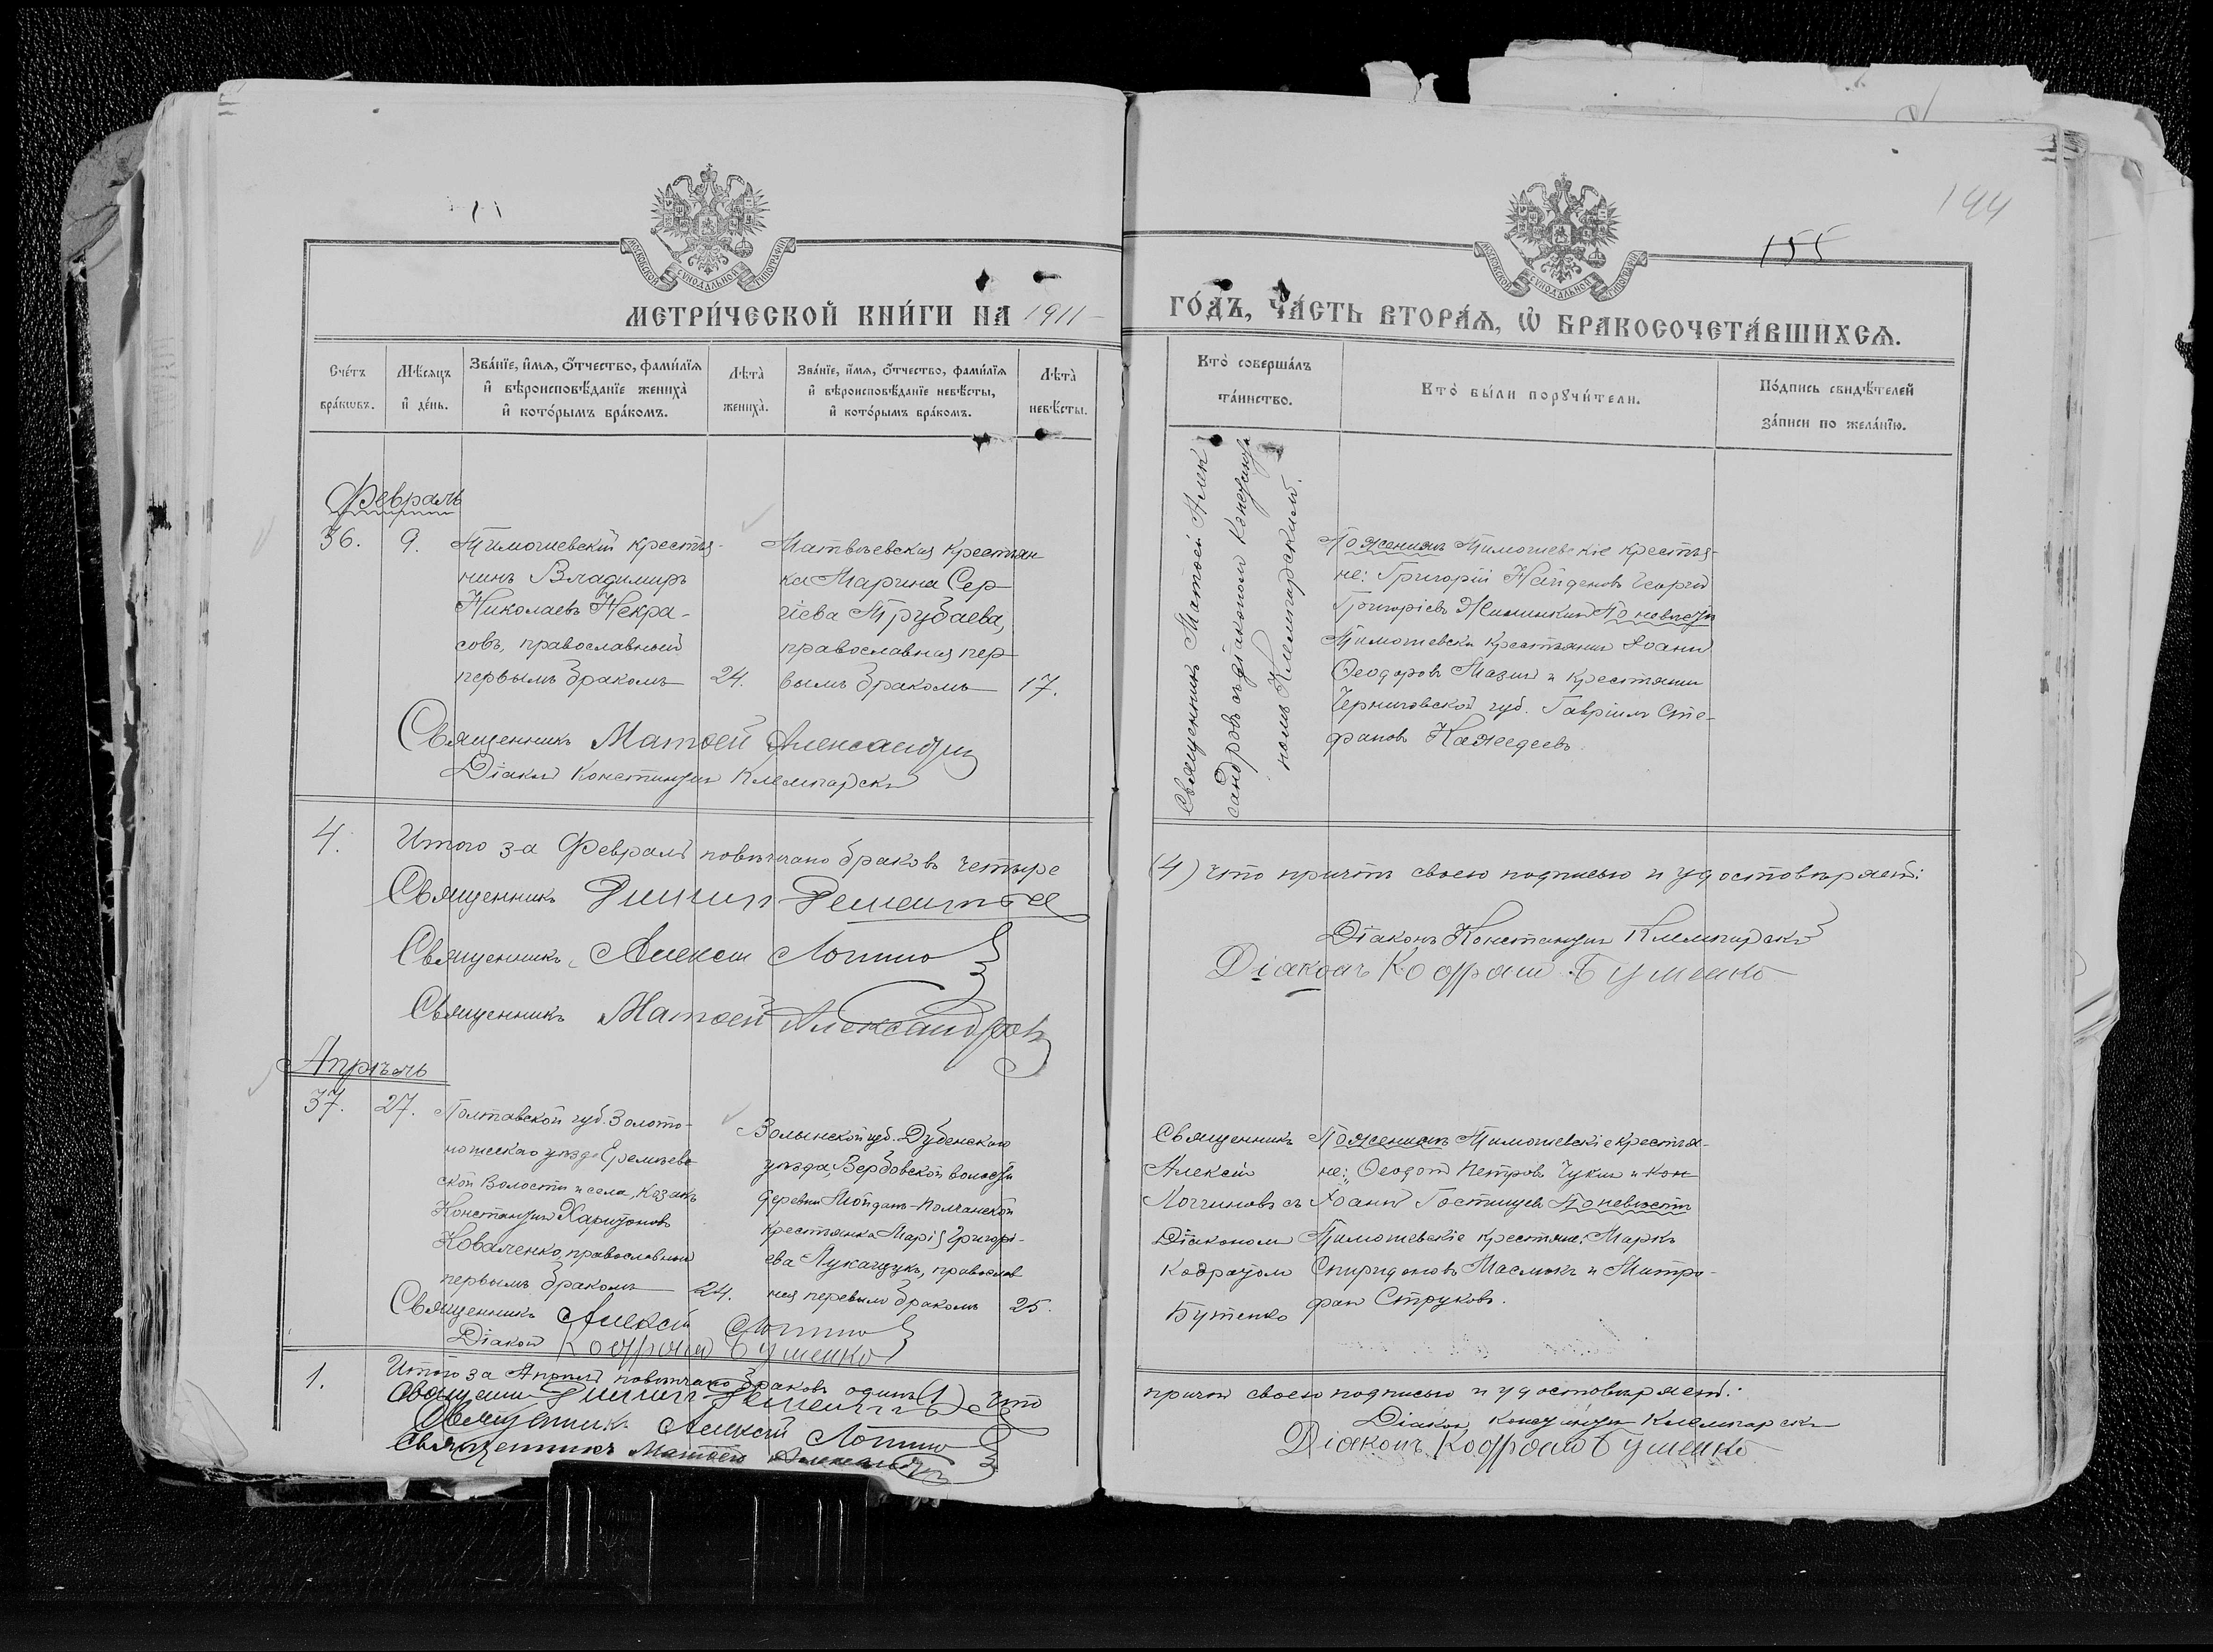 194
155
МОСКОВСКОЙ СѴНОДАЛЬНОЙ ТИПОГРАФІИ
МОСКОВСКОЙ СѴНОДАЛЬНОЙ ТИПОГРАФІИ
МЕТРИ́ЧЕСКОЙ КНИ́ГИ НА 1911
ГО́ДЪ, ЧА́СТЬ ВТОРА́Ѧ, Ѡ҆ БРАКОСОЧЕТА́ВШИХСѦ.
Сче́тъ бра́кѡвъ.
Мѣ́сѧцъ и҆ де́нь.
Зва́нїе, и҆́мѧ, ѻ҆́тчество, фами́лїѧ
и҆ вѣроисповѣ́данїе жениха̀
и҆ кото́рымъ бра́комъ.
Лѣта̀ жениха̀.
Зва́нїе, и҆́мѧ, ѻ҆́тчество, фами́лїѧ
и҆ вѣроисповѣ́данїе невѣ́сты,
и҆ кото́рымъ бра́комъ.
Лѣта̀ невѣ́сты.
Кто̀ соверша́лъ
та́инство.
Кто̀ бы́ли порꙋчи́тели.
По́дпись свидѣ́телей
за́писи по жела́нїю.
Февраль
36.
9.
Тимошевскій крестья-
нинъ Владимиръ
Николаевъ Некра-
совъ, православный
первымъ бракомъ
24.
Матвѣевская крестьян-
ка Марина Сер-
гіева Трубаева,
православная пер-
вымъ бракомъ
17.
Священникъ Матѳей Алек
сандровъ съ діакономъ Константи
номъ Клемпарскимъ.
По женихѣ Тимошевскіе крестья-
не: Григорій Найденовъ Георгій
Григоріевъ По невѣстѣ
Тимошевскій крестьянинъ Іоаннъ
Ѳеодоровъ Мазий и крестьянинъ
Черниговской губ. Гавріилъ Сте-
фановъ
Священникъ Матѳей Александровъ
Діаконъ Константинъ Клемпарскій
4.
Итого за Февраль повѣнчано браковъ четыре
(4) что причтъ своею подписью и удостовѣряетъ:
Священникъ
Священникъ Алексій
Священникъ Матѳей Александровъ
Діаконъ Константинъ Клемпарскій
Діаконъ Кодратъ Бутенко
Апрѣль
37.
27.
Полтавской губ. Золото-
ношскаго уѣзда Еремѣев-
ской волости и села, казакъ
Константинъ Харитоновъ
Коваленко, православный
первымъ бракомъ
24.
Волынской губ. Дубенскаго
уѣзда, Вербовской волости
деревни Мойданъ-Полчанской
крестьянка Марія Григорі-
ева Лукащукъ, православ
ная первымъ бракомъ
25.
Священникъ
Алексій
Логгиновъ съ
Діакономъ
Кодратомъ
Бутенко
По женихѣ Тимошевскіе крестья-
не: Ѳеодотъ Петровъ Чукин и Кон
Іоаннъ Гостищевъ По невѣстѣ
Тимошевскіе крестьяне: Маркъ
Спиридоновъ Маслюкъ и Митро-
фанъ Струковъ.
Священникъ Алексій
Діаконъ Кодратъ Бутенко
1.
Итого за Апрѣль повѣнчано браковъ одинъ (1) Что
причтъ своею подписью и удостовѣряетъ:
Священникъ
Священникъ Алексій
Священникъ Матѳей Александровъ
Діаконъ Константинъ Клемпарскій
Діаконъ Кодратъ Бутенко